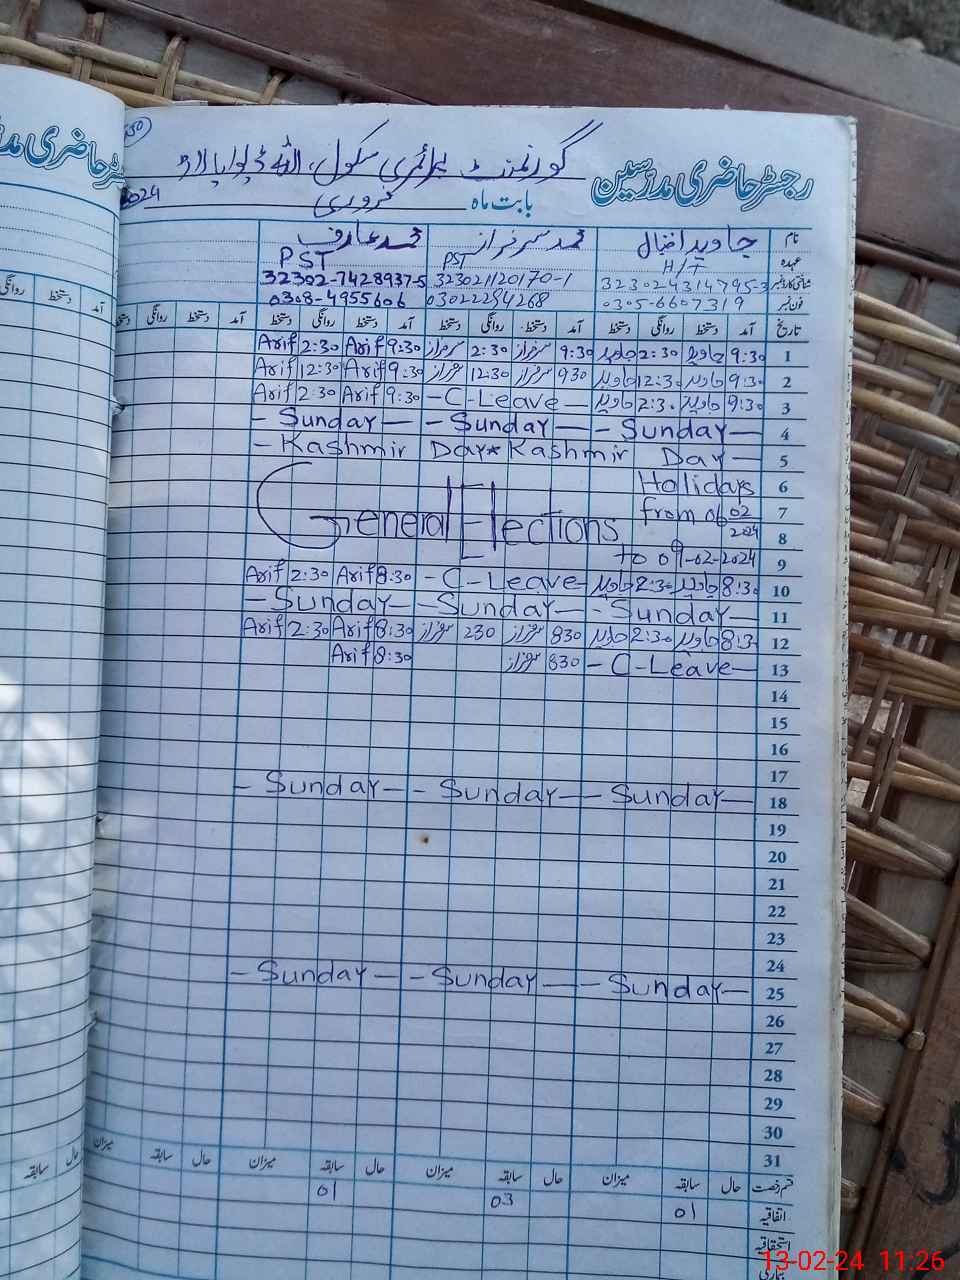 رجسٹر حاضری مدرسین گورنمنٹ پرائمری سکول
بابت ماہ فروری 2024
نام جاوید اقبال محمد سرفراز محمد عارف
عہدہ H/T PST PST
شناختی کارڈ نمبر 32302-7428937-5
فون نمبر 0305-6607319 03022294268 0308-4955606
تاریخ آمد دستخط روانگی دستخط آمد دستخط روانگی دستخط آمد دستخط روانگی دستخط آمد دستخط روانگی دستخط
1 9:30 جاوید 2:30 جاوید 9:30 سرفراز 2:30 سرفراز 9:30 Arif 2:30 Arif
2 9:30 جاوید 12:30 جاوید 930 سرفراز 12:30 سرفراز 9:30 Arif 12:30 Arif
3 9:30 جاوید 2:30 جاوید - C - Leave - 9:30 Arif 2:30 Arif
4 - Sunday - - Sunday - - Sunday -
5 - Kashmir Day * Kashmir Day -
6 Holidays
7 from 06 02 2024
8 General Elections
9 to 09-02-2024
10 8:30 جاوید 2:30 جاوید - C - Leave - 8:30 Arif 2:30 Arif
11 - Sunday - - Sunday - - Sunday -
12 8:30 جاوید 2:30 جاوید 830 سرفراز 230 سرفراز 8:30 Arif 2:30 Arif
13 - C - Leave - 830 سرفراز 8:30 Arif
14
15
16
17
18 - Sunday - - Sunday - - Sunday -
19
20
21
22
23
24
25 - Sunday - - Sunday - - Sunday -
26
27
28
29
30
31
قسم رخصت حال سابقہ میزان حال سابقہ میزان حال سابقہ میزان حال سابقہ میزان
اتفاقیہ 01 03 01
استحقاقیہ
بیماری
13-02-24 11:26